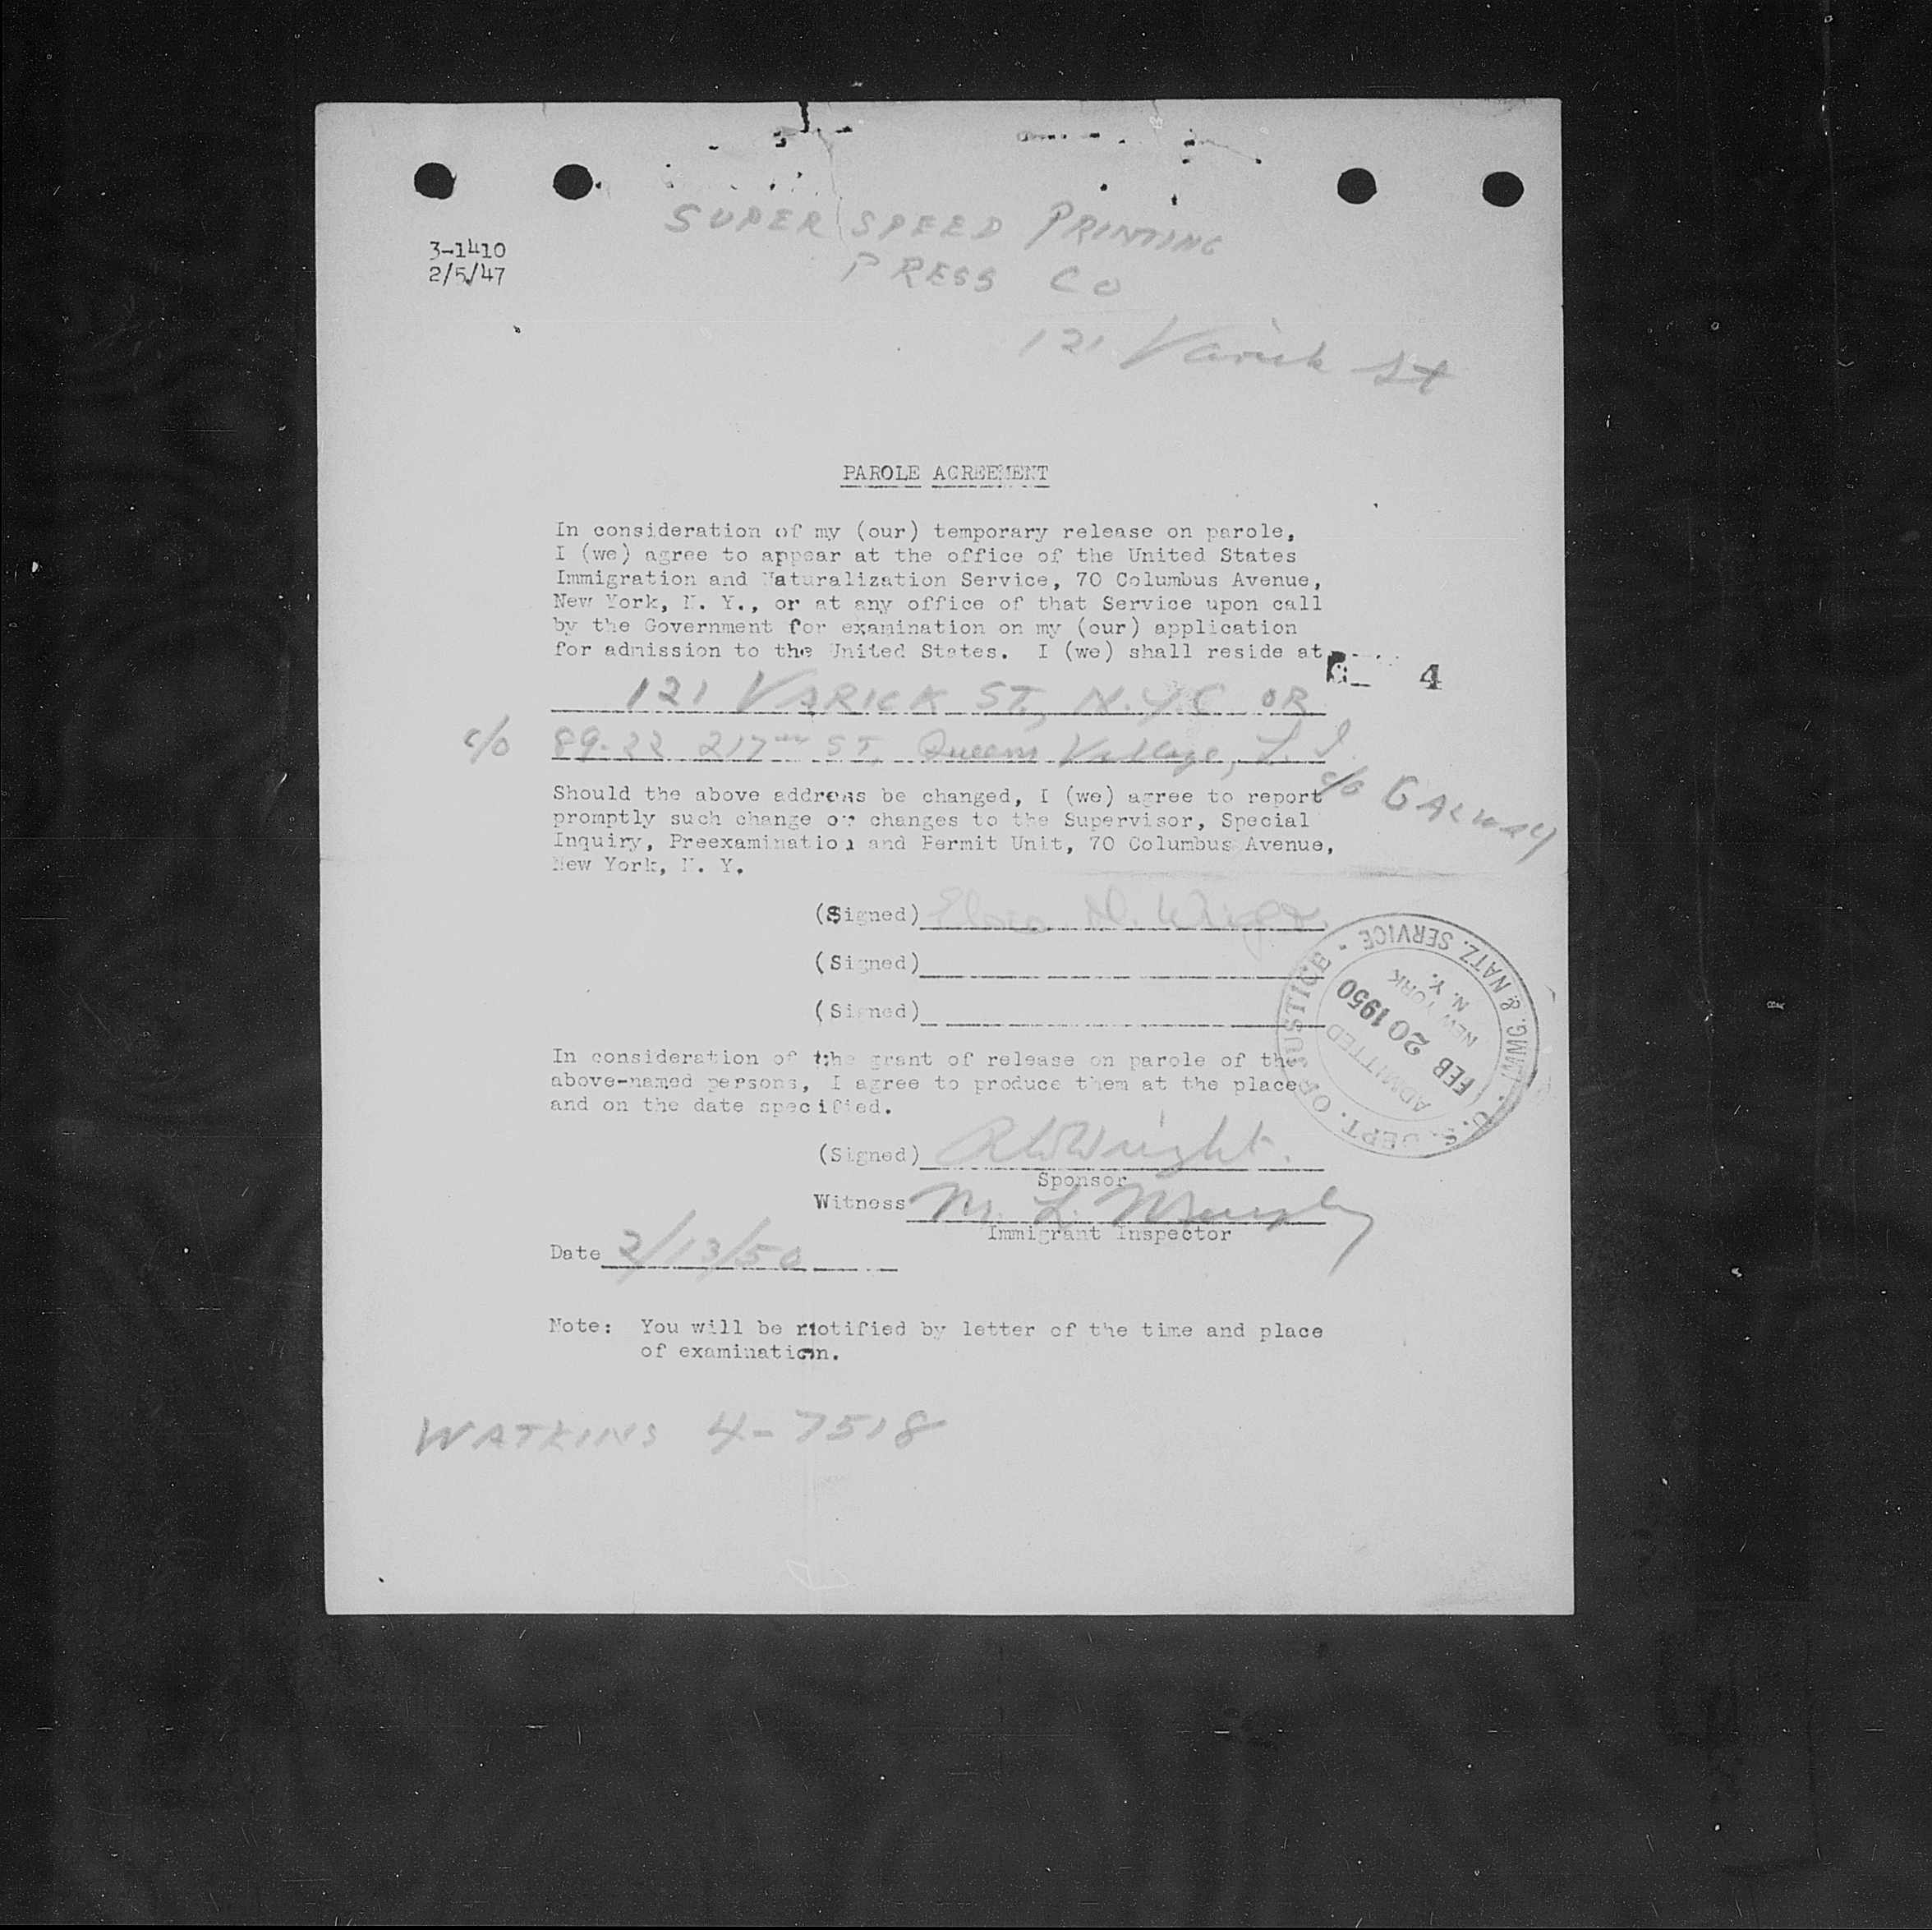 SUPER SPEED PRINTING
PRESS CO
3-1410
2/5/47
121 Varick St
PAROLE AGREEMENT
In consideration of my (our) temporary release on parole,
I (we) agree to appear at the office of the United States
Immigration and Naturalization Service, 70 Columbus Avenue,
New York, N. Y., or at any office of that Service upon call
by the Government for examination on my (our) application
for admission to the United States. I (we) shall reside at
4
121 VARICK ST, N.Y.C OR
c/o 89-22 217 ST, Queens Village, L. I.
c/o GALWAY
Should the above address be changed, I (we) agree to report
promptly such change or changes to the Supervisor, Special
Inquiry, Preexamination and Permit Unit, 70 Columbus Avenue,
New York, N. Y.
(Signed)
(Signed)
(Signed)
U. S. DEPT. OF JUSTICE - IMMG. & NATZ. SERVICE -
ADMITTED
FEB 20 1950
NEW YORK
N. Y.
In consideration of the grant of release on parole of the
above-named persons, I agree to produce them at the place
and on the date specified.
(Signed) Wright.
Sponsor
Witness M. L. Murphy
Immigrant Inspector
Date 2/13/50
Note: You will be notified by letter of the time and place
of examination.
WATKINS 4-7518